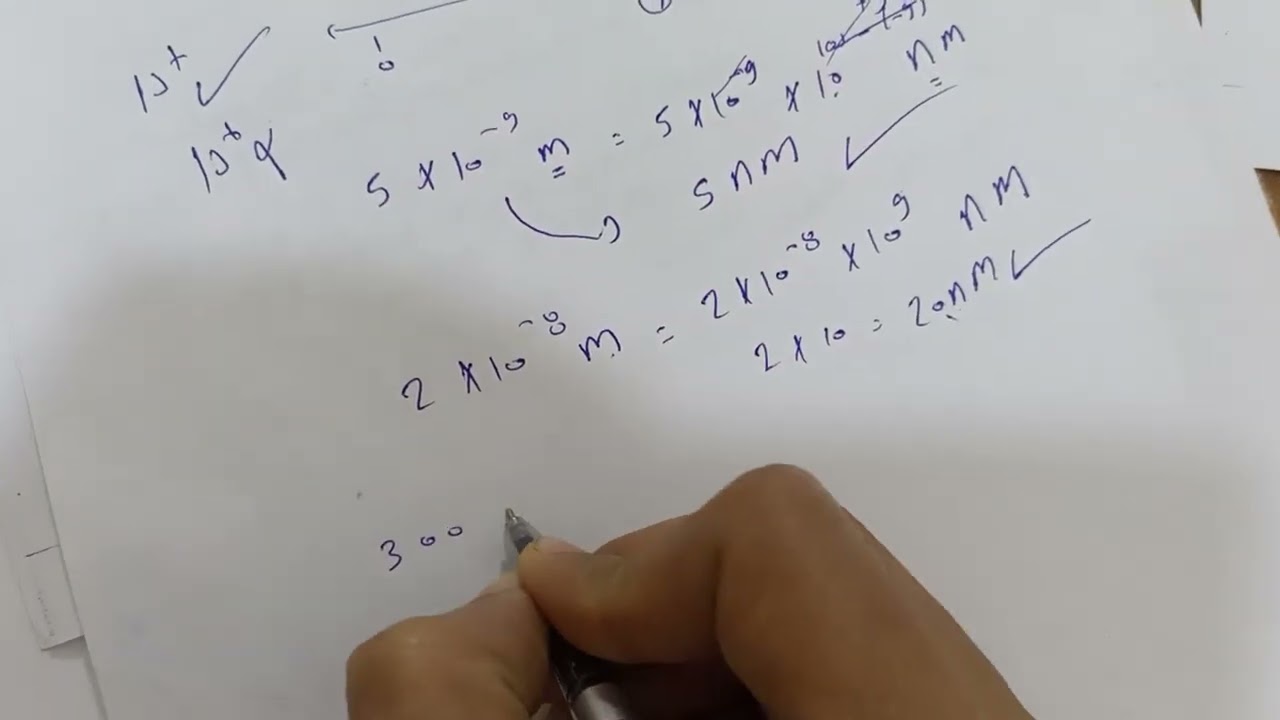 10
5 × 10⁻⁹ m = 5 × 10⁻⁹ × 10 nm
5 nm
2 × 10⁻⁸ m = 2 × 10⁻⁸ × 10⁹ nm
2 × 10 = 20nm
300